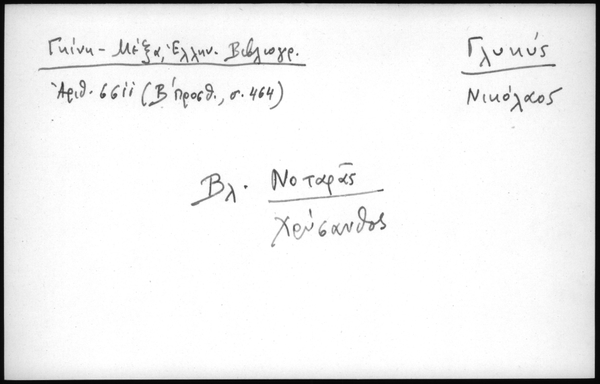 Γκίνη - Μέξα, Ἑλλην. Βιβλιογρ.
Ἀριθ. 66ii (Β΄ προσθ., σ. 464)
Γλυκύς
Νικόλαος
Βλ. Νοταρᾶς
Χρύσανθος